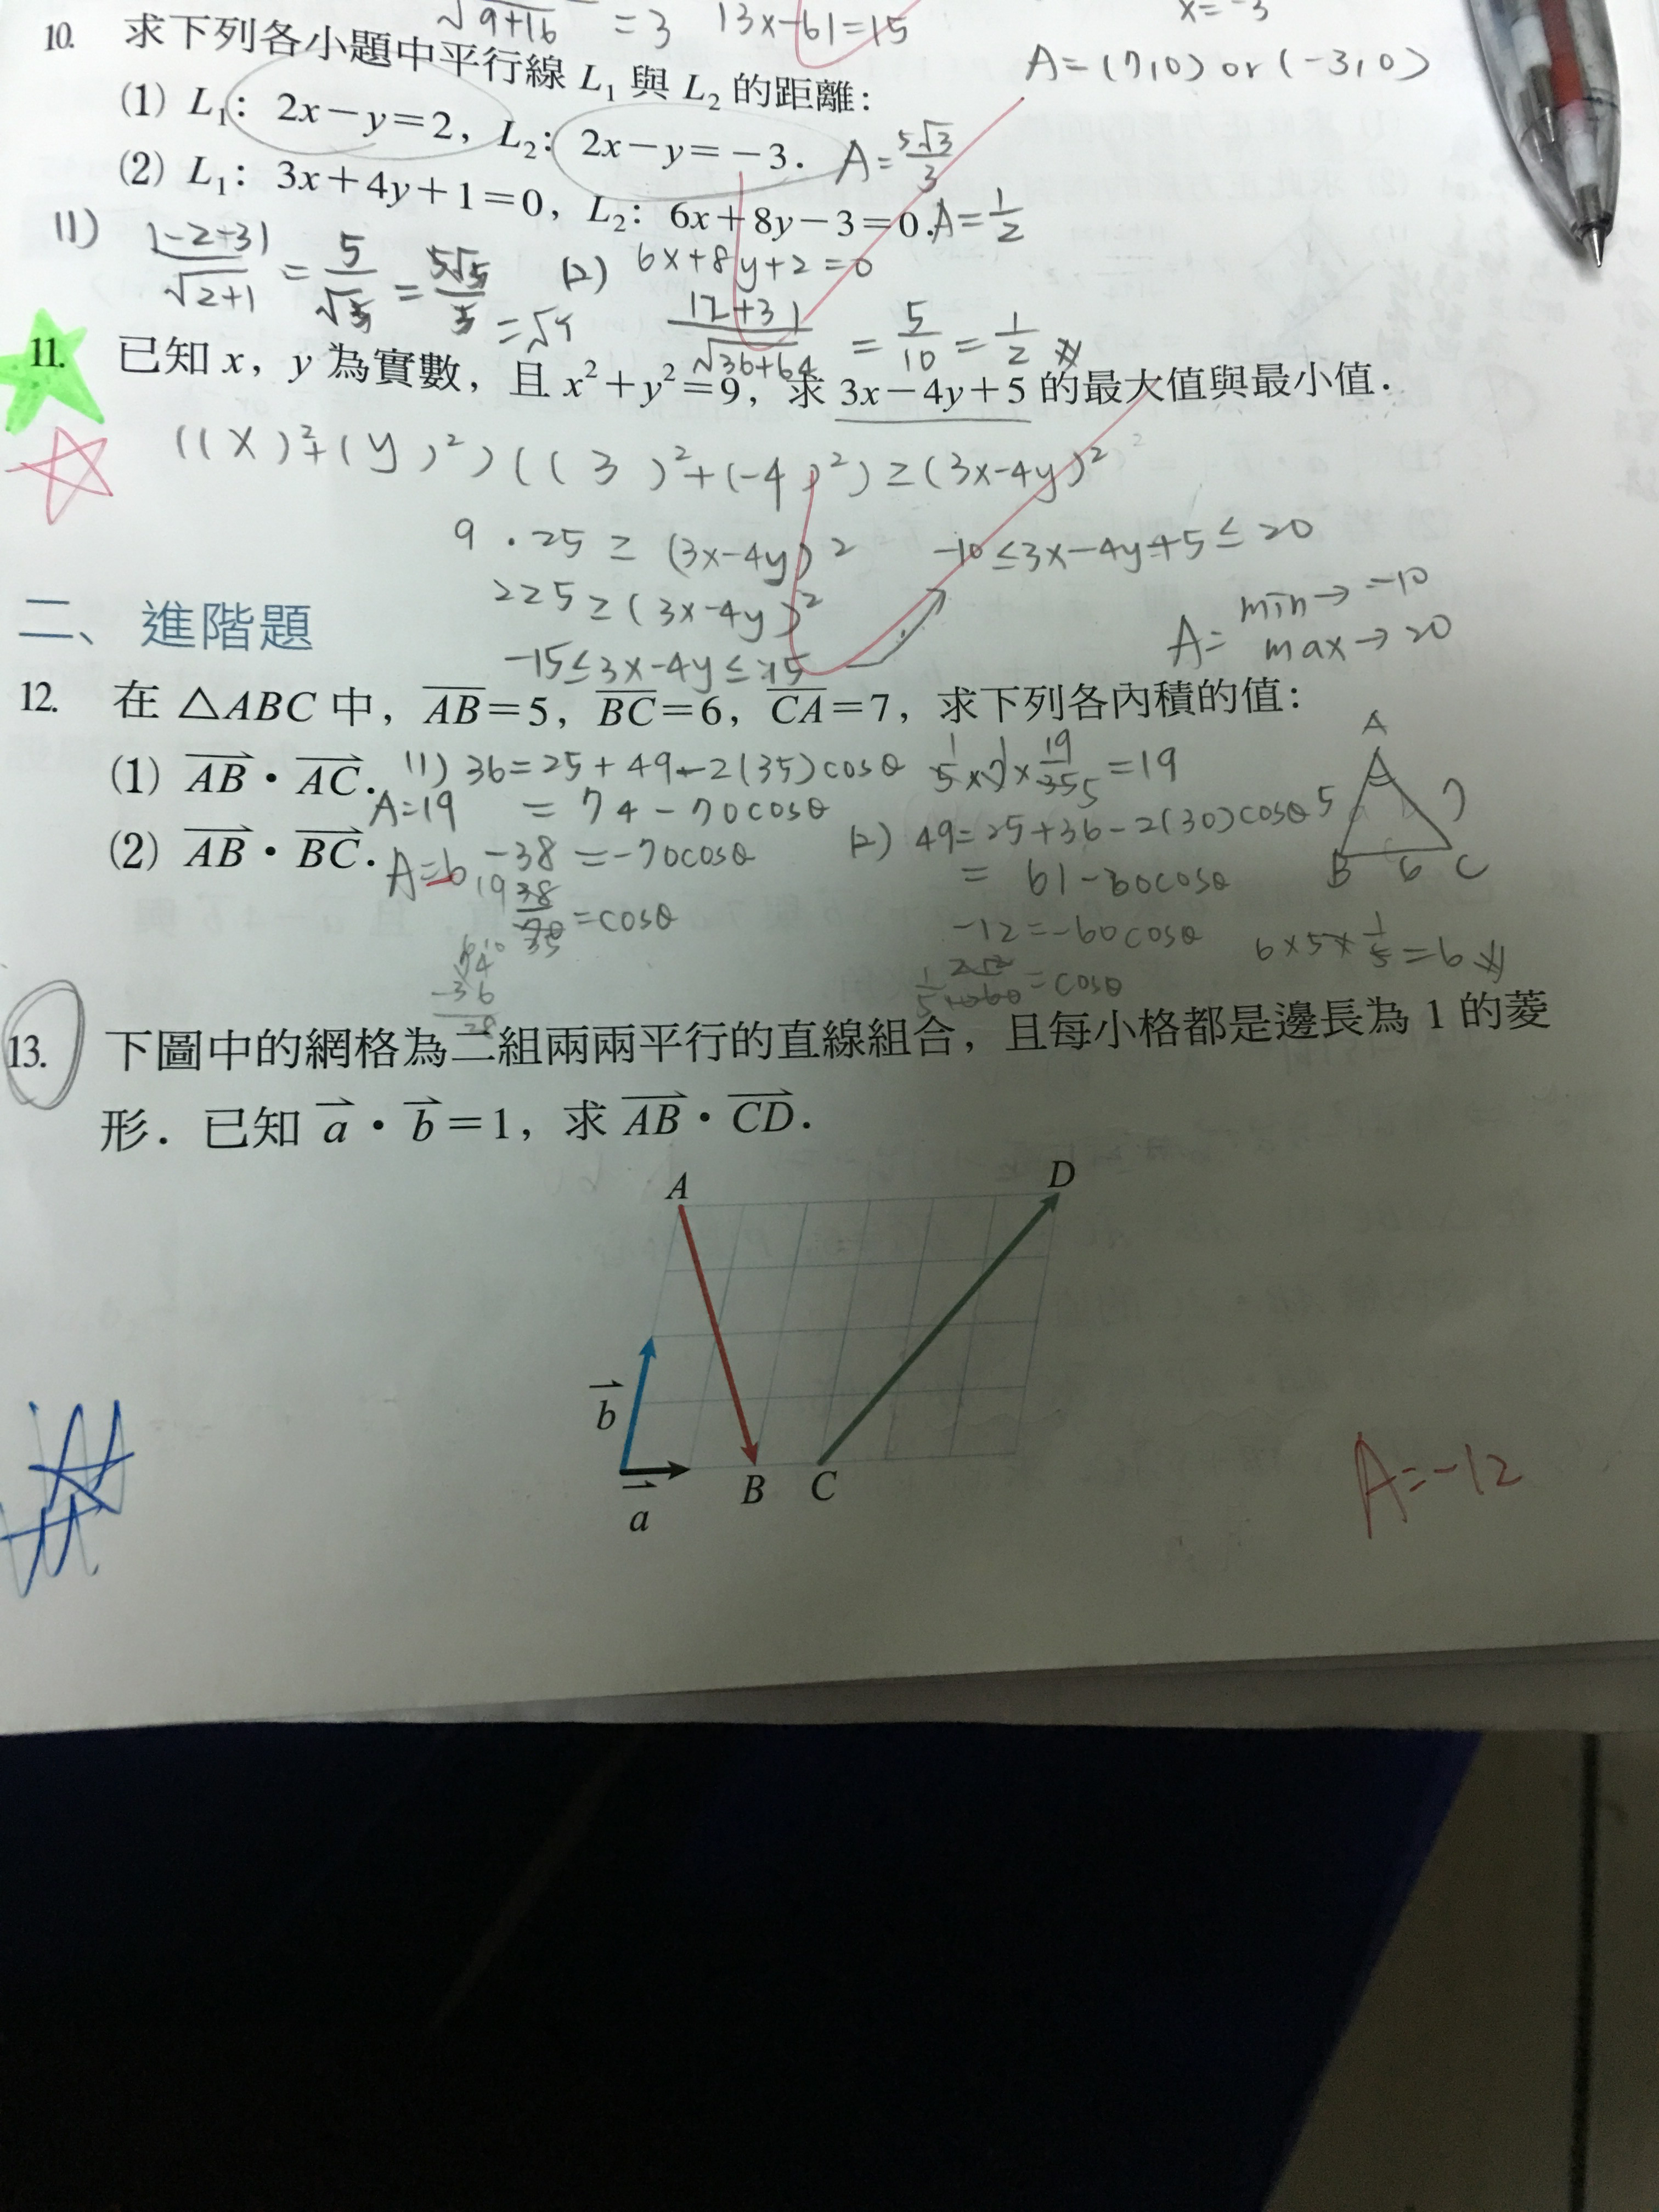 √9+16 = 3 |3x-6|=15
x=-3
A=(7,0) or (-3,0)
10. 求下列各小題中平行線 L₁ 與 L₂ 的距離：
(1) L₁：2x－y＝2，L₂：2x－y＝－3． A=5√3/3
(2) L₁：3x＋4y＋1＝0，L₂：6x＋8y－3＝0． A=1/2
(1) |-2-3|/√2+1 = 5/√5 = 5√5/5 = √5
(2) 6x+8y+2=0
|2+3|/√36+64 = 5/10 = 1/2
11. 已知 x，y 為實數，且 x²＋y²＝9，求 3x－4y＋5 的最大值與最小值．
((x)²+(y)²)((3)²+(-4)²)≥(3x-4y)²
9·25≥(3x-4y)²
225≥(3x-4y)²
-15≤3x-4y≤15
-10≤3x-4y+5≤20
A= min→-10
max→20
二、進階題
12. 在 △ABC 中，AB＝5，BC＝6，CA＝7，求下列各內積的值：
(1) AB・AC． A=19
(2) AB・BC． A=6
(1) 36=25+49-2(35)cosθ
= 74-70cosθ
-38=-70cosθ
19 38/70 35 =cosθ
74
-36
5×7×19/35=19
(2) 49=25+36-2(30)cosθ
= 61-60cosθ
-12=-60cosθ
=cosθ
6×5×1/5=6
A
5
7
B
6
C
13. 下圖中的網格為二組兩兩平行的直線組合，且每小格都是邊長為 1 的菱
形．已知 a・b＝1，求 AB・CD．
A
D
b
a
B
C
A=-12